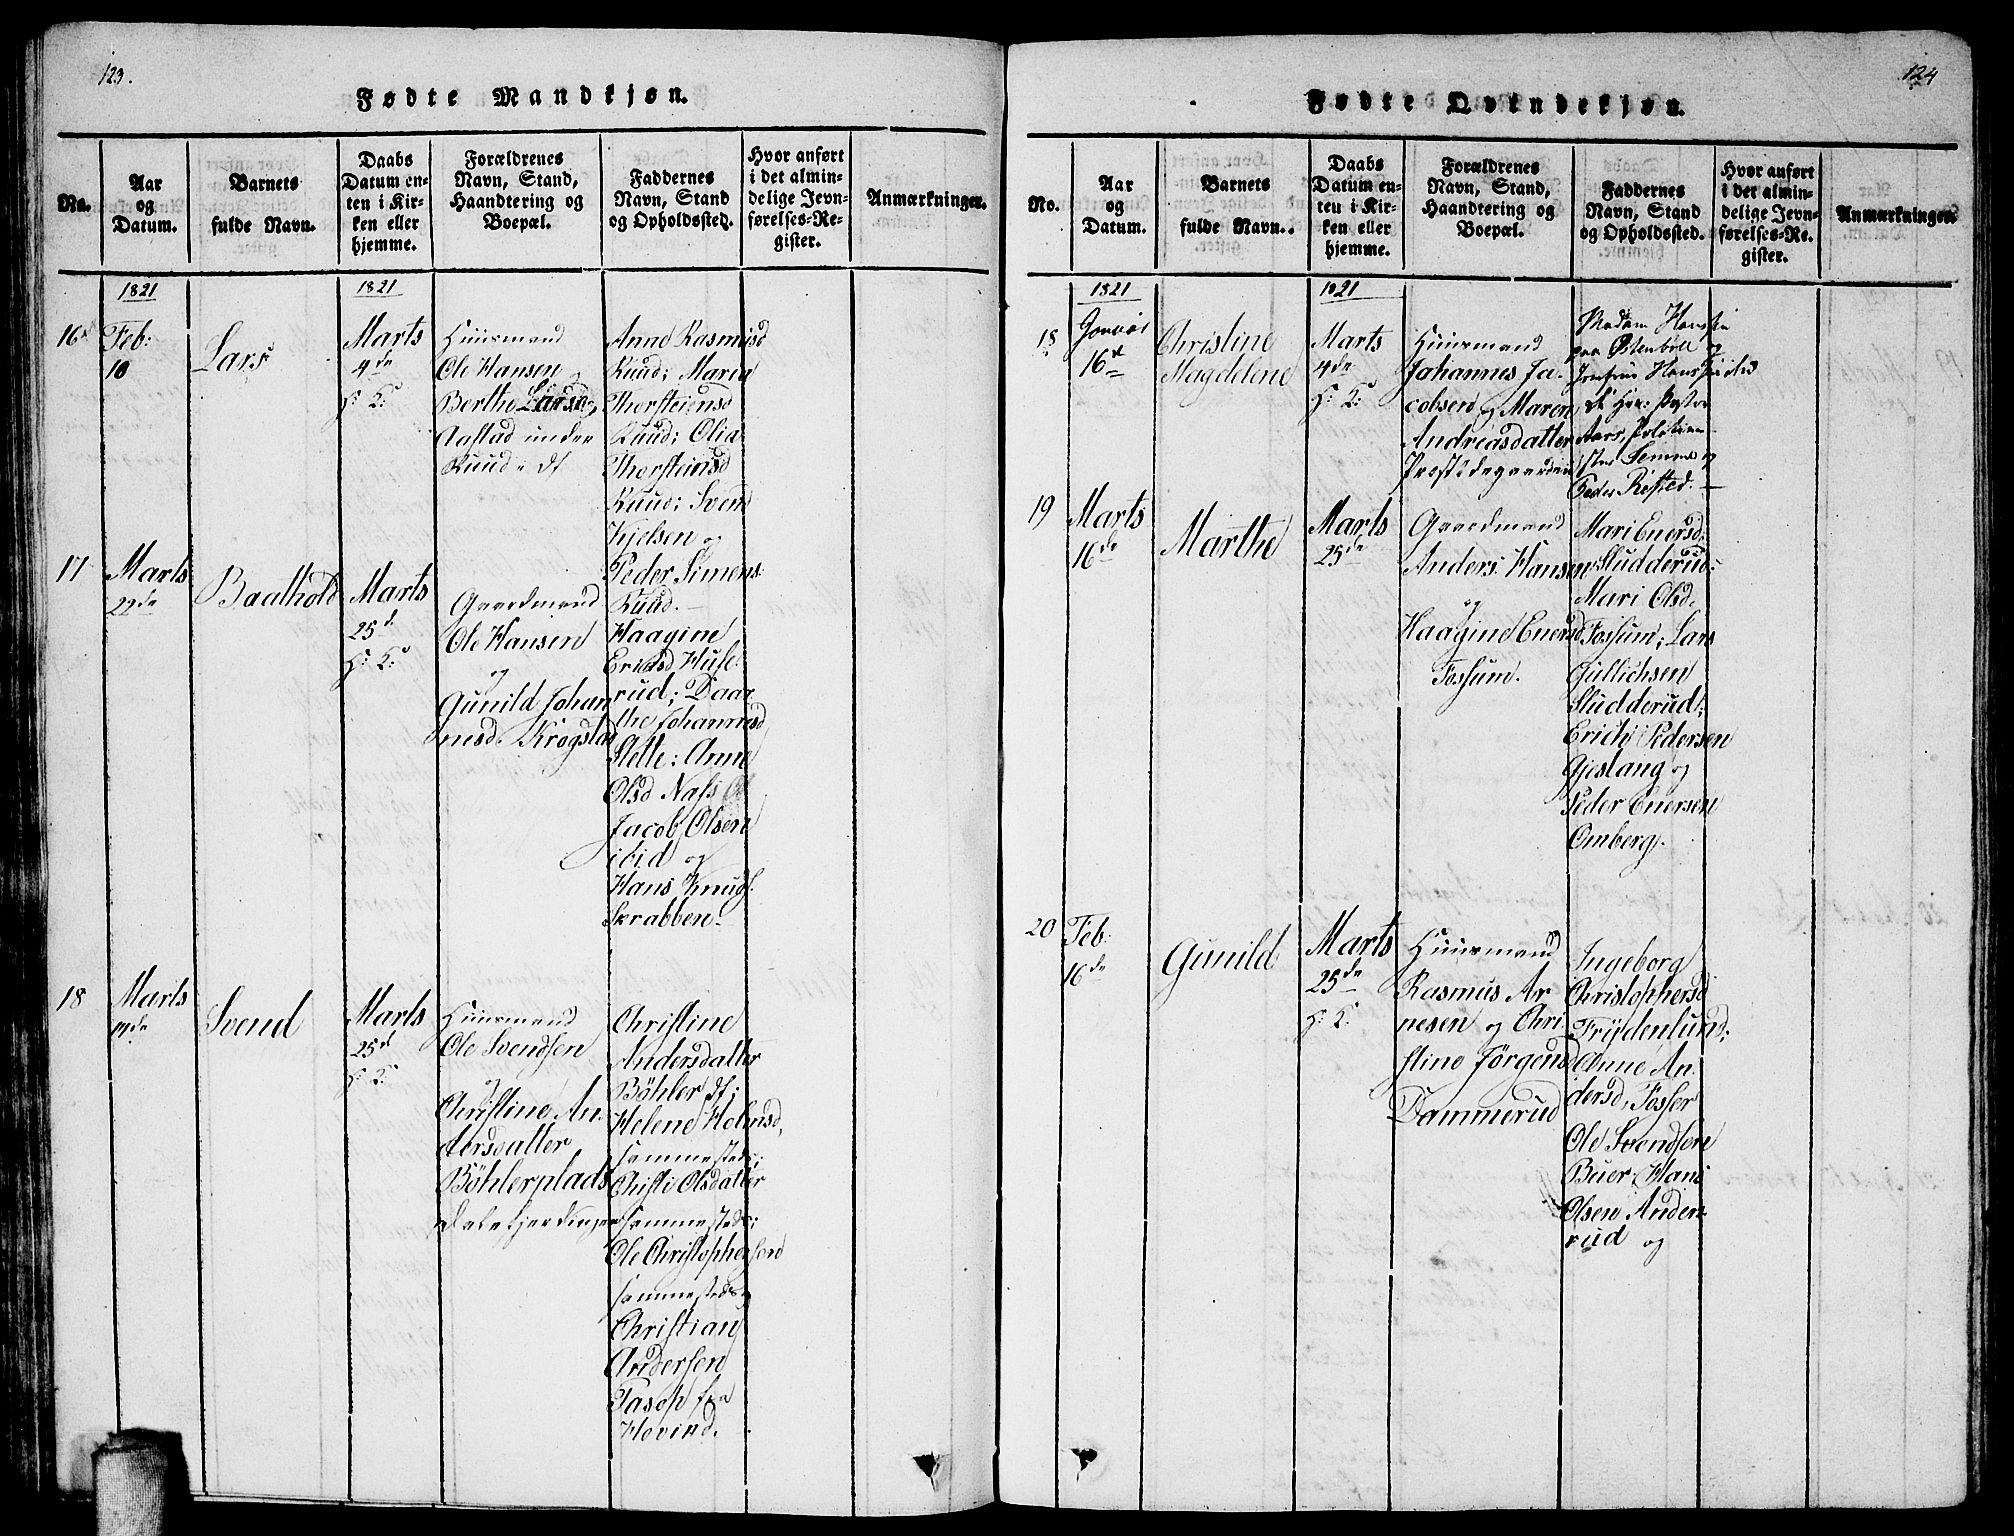 123.
Fødte Mandkjøn.
No.
Aar
og
Datum.
Barnets
fulde Navn.
Daabs
Datum en-
ten i Kir-
ken eller
hjemme.
Forældrenes
Navn, Stand,
Haandtering og
Boepæl.
Faddernes
Navn, Stand
og Opholdssted.
Hvor anført
i det almin-
delige Jevn-
førelses-Re-
gister.
Anmærkninger.
1821
1821
16
Feb:
10
Lars
Marts
4de
H: K:
Huusmand
Ole Hansen
Berthe Larsd
Aastad under
Ruud
Anne Rasmusd
Ruud; Maria
Thorsteinsd
Ruud; Olia
Thorsteinsd
Ruud; Svend
Kjelsen og
Peder Simens:
Ruud.
17
Marts
22de
Baathold
Marts
25d
H: K:
Gaardmand
Ole Hansen
og
Gunild Johan
nesd. Krogstad
Haagine
Ericksd Huse
rud; Daar
the Johannesd
Slette; Anne
Olsd Næss
Jacob Olsen
ibid og
Hans Knuds:
Skrabben
18
Marts
Svend
Marts
25d
H: K:
Huusmand
Ole Svendsen
og
Christine An
dersdatter
Böhlerplads
Christine
Andersdatter
Böhler
Helene Holmsd,
sammesteds;
Christi Olsdatter
sammesteds;
Ole Christophersen
sammesteds og
Christian
Andersen
fra
Hovind.
124
Fødte Qvindekjøn.
No.
Aar
og
Datum.
Barnets
fulde Navn.
Daabs
Datum en-
ten i Kir-
ken eller
hjemme.
Forældrenes
Navn, Stand,
Haandtering og
Boepæl.
Faddernes
Navn, Stand
og Opholdssted.
Hvor anført
i det almin-
delige Jevn-
førelses-Re-
gister.
Anmærkninger.
1821
1821
18
Januar
16d
Christine
Magdelene
Marts
4de
H: K:
Huusmand
Johannes Ja-
cobsen og Maren
Andreasdatter
Præstegaarden
Madam Hansen
paa Østenbøll og
Jomfrue Hans
Hr: Pastor
Aars,
og
Peder Risted.
19
Marts
16de
Marthe
Marts
25de
Gaardmand
Anders Hansen
og
Haagine Enersd
Fossum.
Mari Enersd
Sludderud;
Mari Olsd.
Fossum; Lars
Gullichsen
Sludderud;
Erich Pedersen
Gjeslang og
Peder Enersen
Omberg.
20
Feb:
16de
Gunild
Marts
25de
H: K:
Huusmand
Rasmus Ar
nesen og Chri
stine Jörgensd
Dammerud
Ingeborg
Christophersd
Fröidenlund;
Anne An
dersd, Fosser
Ole Svendsen
Buer; Hans
Olsen Anders
rud og